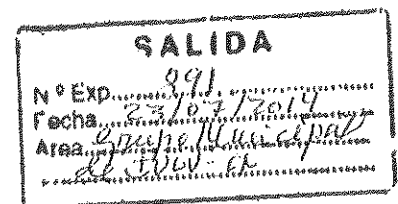 SALIDA
Nº Exp. 891
Fecha 23/07/2014
Area Grupo Municipal
de IULV-CA